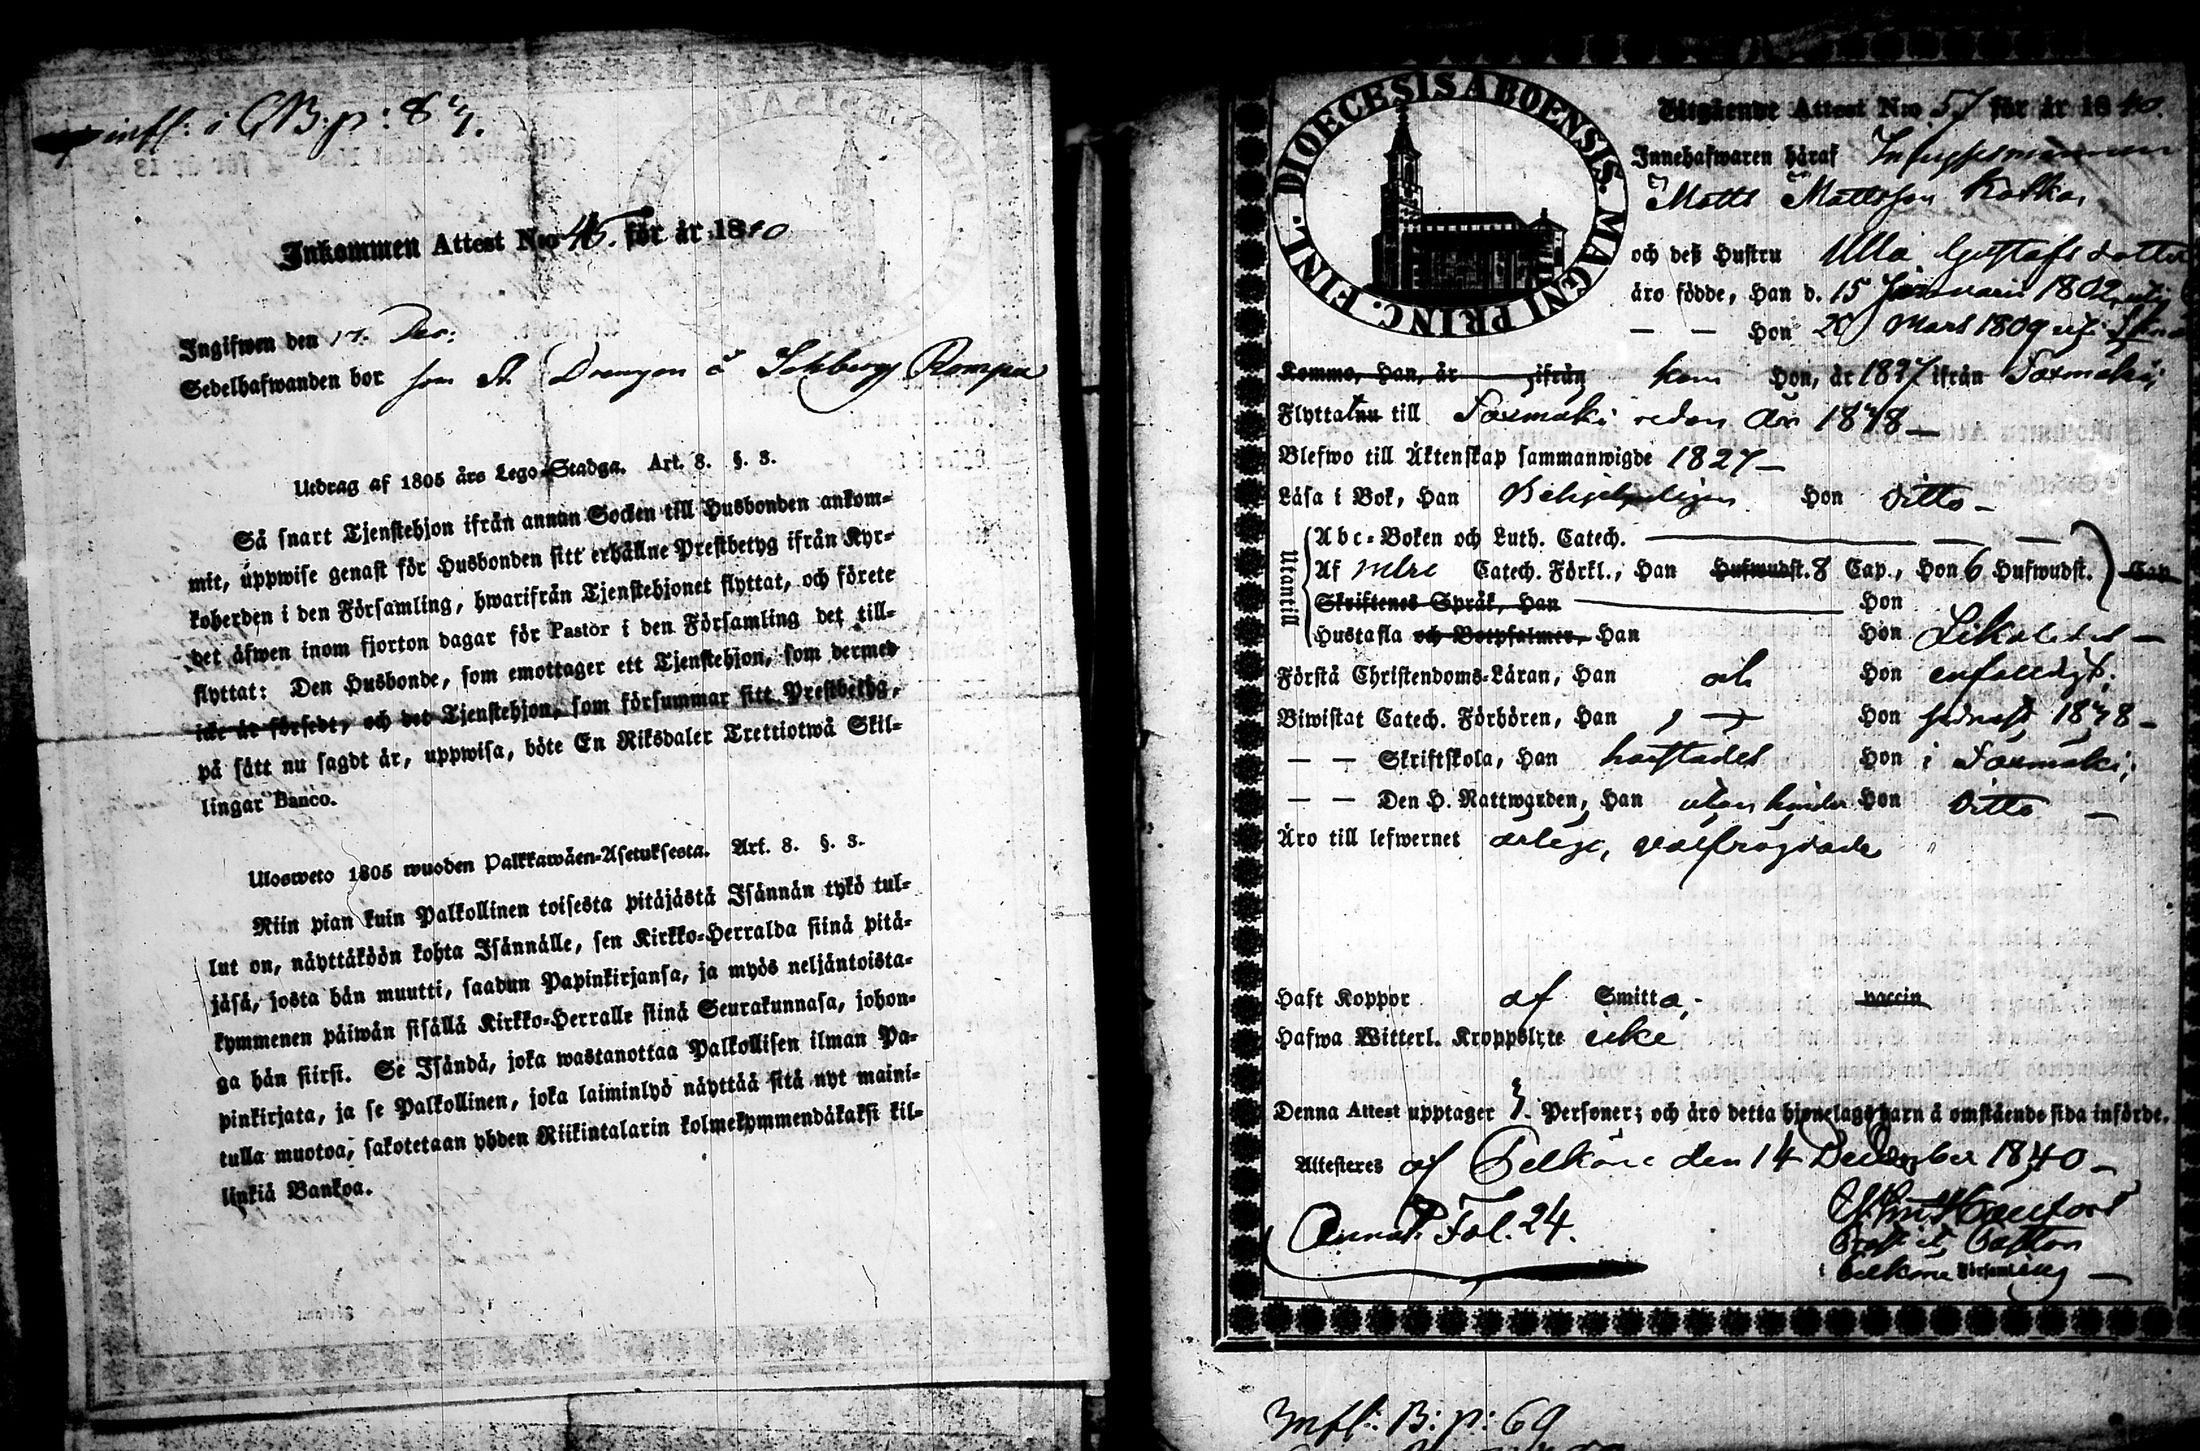 infl: i CB: p: 87.
Inkommen Attest N:o 45. för år 1840
Ingifwen den 17. Dec:
Sedelhafwanden bor som St. Drengen å Rompu
Utdrag af 1805 års Lego-Stadga. Art. 8. §. 3.
Så snart Tjenstehjon ifrån annan Socken till Husbonden ankom-
mit, uppwise genast för Husbonden sitt erhållne Prestbetyg ifrån Kyr-
koherden i den Församling, hwarifrån Tjenstehjonet flyttat, och förete
det äfwen inom fjorton dagar för Pastor i den Församling det till-
flyttat: Den Husbonde, som emottager ett Tjenstehjon, som dermed
icke är försedt, och det Tjenstehjon, som försummar sitt Prestbetyg,
på sätt nu sagdt är, uppwisa, böte En Riksdaler Trettiotwå Skil-
lingar Banco.
Ulosweto 1805 wuoden Palkkawäen-Asetuksesta. Art. 8. §. 3.
Niin pian kuin Palkollinen toisesta pitäjästä Isännän tykö tul-
lut on, näyttäköön kohta Isännälle, sen Kirkko-Herralda siinä pitä-
jäsä, josta hän muutti, saadun Papinkirjansa, ja myös neljäntoista-
kymmenen päiwän sisällä Kirkko-Herralle siinä Seurakunnasa, johon-
ga hän siirsi. Se Isändä, joka wastanottaa Palkollisen ilman Pa-
pinkirjata, ja se Palkollinen, joka laiminlyö näyttää sitä nyt maini-
tulla muotoa, sakotetaan yhden Riikintalarin kolmekymmendäkaksi kil-
linkiä Bankoa.
DIOECESIS ABOENSIS. MAGNI PRINC. FINL.
Utgående Attest N:o 57 för år 1840.
Innehafwaren häraf Inhysesmannen
Matts Mattsson Kotka,
och deß Hustru Ulla Gustafsdotter
äro födde, Han d. 15 Januarii 1802
— — Hon 20 Mars 1809
Kommo, Han, år ifrån kom Hon, år 1827 ifrån Saxmäki,
Flyttat nu till Saxmäki redan år 1838 —
Blefwo till Äktenskap sammanwigde 1827 —
Läsa i Bok, Han Behjelpeligen Hon Ditto —
Utantill
Abc-Boken och Luth. Catech.
Af mlre Catech. Förkl., Han Hufwudst. 8 Cap., Hon 6 Hufwudst. Cap
Skriftenes Språk, Han Hon
Hustafla och Botpsalmer, Han Hon Likaledes —
Förstå Christendoms-Läran, Han och Hon enfaldigt.
Biwistat Catech. Förhören, Han Hon sednast 1838 —
— — Skriftskola, Han Hon i Saxmäki;
— — Den H. Nattwarden, Han utan hinder Hon Ditto —
Äro till lefwernet ärlige, välfrägdade
Haft Koppor af Smitta, - vaccin
Hafwa Witterl. Kroppslyte icke
Denna Attest upptager 7. Personer; och äro detta hjonelags barn å omstående sida införde.
Attesteres af Pelkäne den 14 December 1840 —
Fol. 24.
Prost et Pastor
i Pelkäne Församling —
Infl: B: p: 69